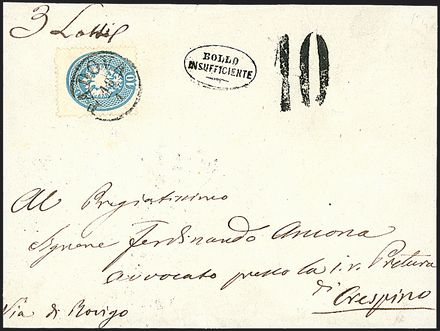 3 Lotti
PADOVA
10
BOLLO
INSUFFICIENTE
10
Al Pregiatissimo
Signore Ferdinando Ancona
avvocato presso la i. r. Pretura
di Crespino
Via di Rovigo